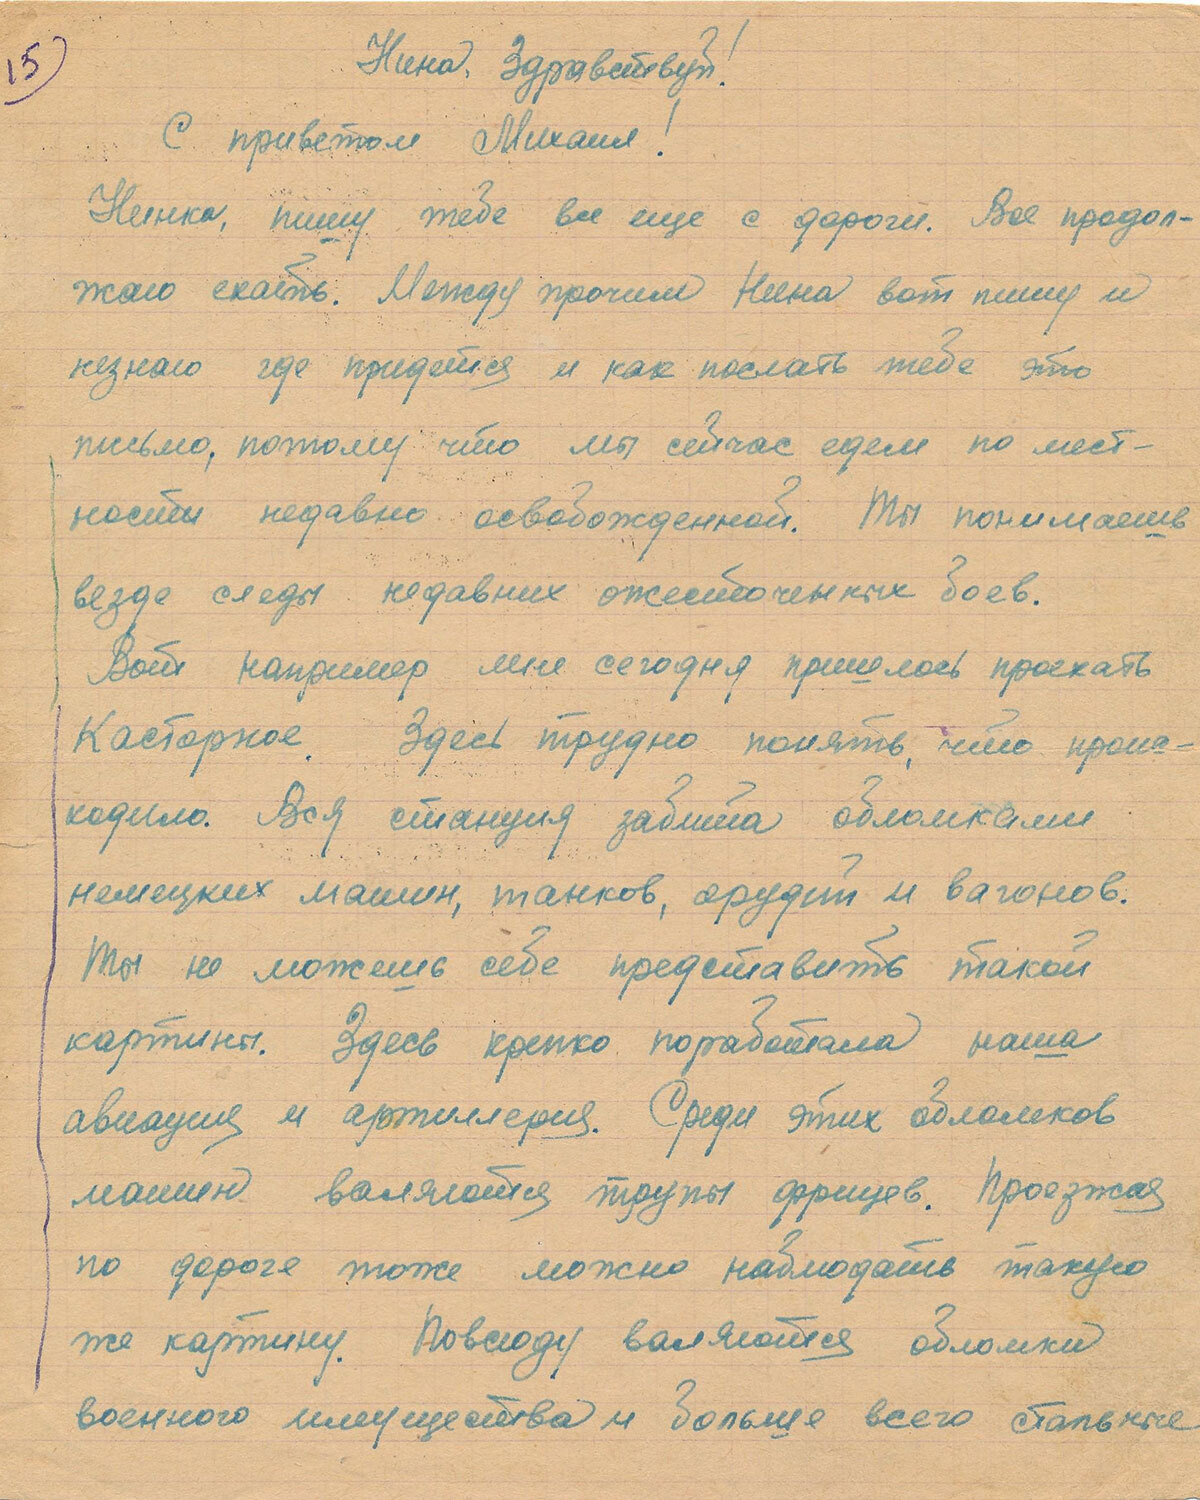 15)
Нина, Здравствуй!
С приветом Михаил!
Нинка, пишу тебе все еще с дороги. Все продол-
жаю ехать. Между прочим Нина вот пишу и
незнаю где придется и как послать тебе это
письмо, потому что мы сейчас едем по мест-
ности недавно освобожденной. Ты понимаешь
везде следы недавних ожесточенных боев.
Вот например мне сегодня пришлось проехать
Касторное. Здесь трудно понять, что проис-
ходило. Вся станция забита обломками
немецких машин, танков, орудий и вагонов.
Ты не можешь себе представить такой
картины. Здесь крепко поработала наша
авиация и артиллерия. Среди этих обломков
машин валяются трупы фрицев. Проезжая
по дороге тоже можно наблюдать такую
же картину. Повсюду валяются обломки
военного имущества и больше всего стальные